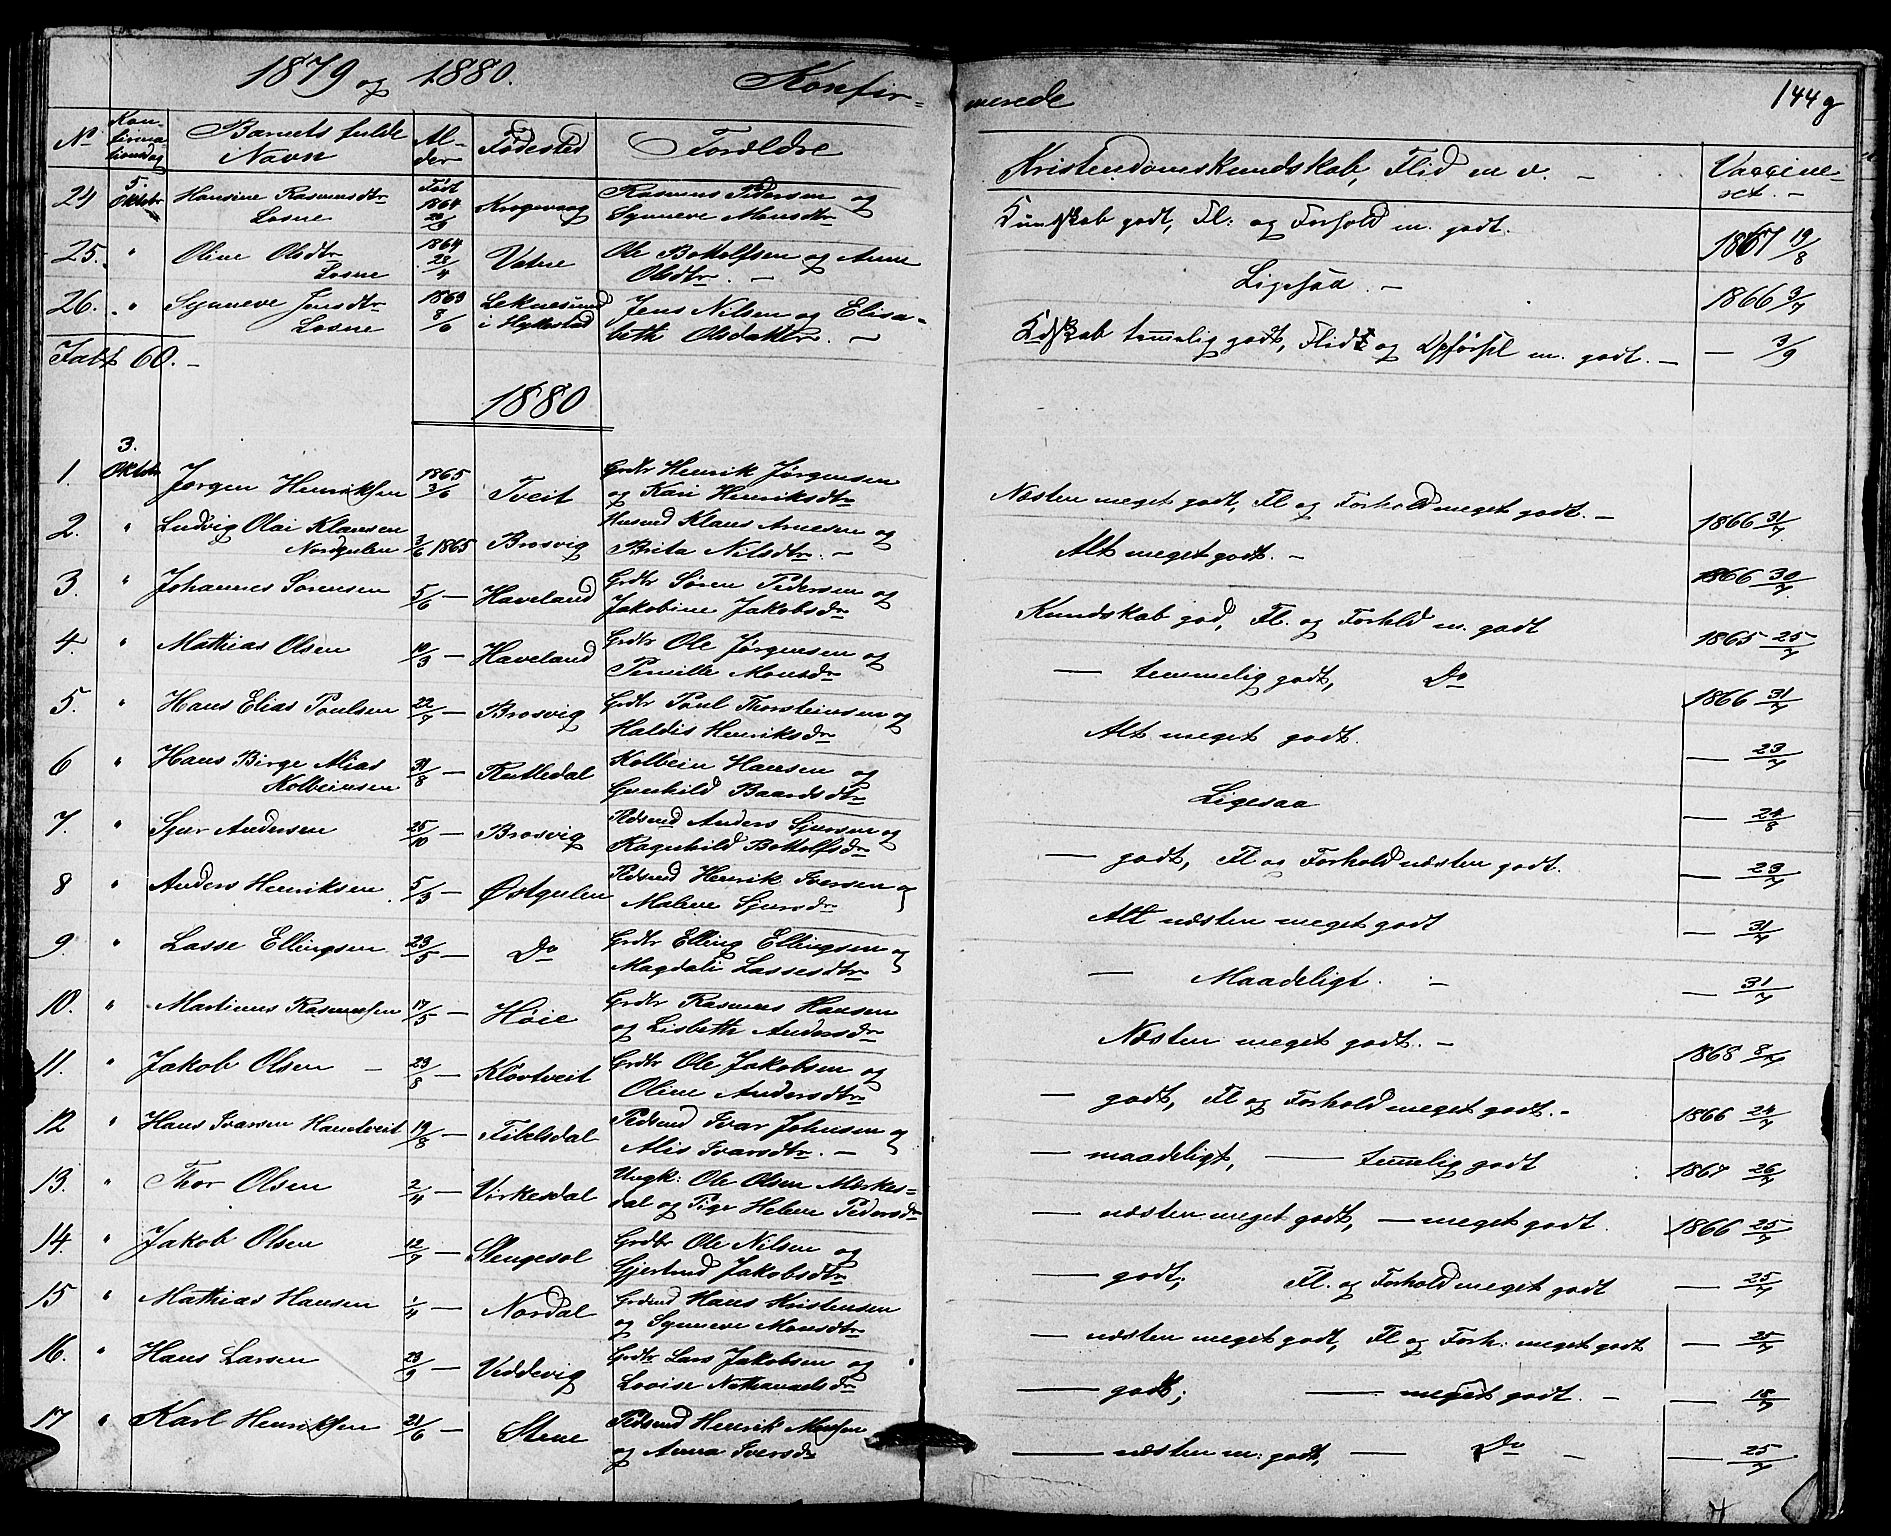 1879 og 1880. Konfir= merede 144g
No Kon-firma-tionsdag Barnets fulde Navn Al-der Fødested Forældre Kristendomskundskab, Flid m. v. — Vaccine-ret. —
24 5. Oktobr Hansine Rasmusdtr Losne Født 1864 Krogevaag Rasmus Pedersen og Synneve Monsdtr Kundskab godt, Fl: og Forhold m. godt. 1867 19/8
25. " Oline Olsdtr Losne 1864 28/4 Vatne Ole Bottolfsen og Anne Olsdtr. — Ligesaa. — 1866 3/7
26. " Synneve Jensdtr Losne 1863 8/6 Leknesund i Hyllestad Jens Nilsen og Elisa-beth Olsdatter. — Kdskab temmelig godt, Flid og Opførsel m. godt. — — 3/9
Talt 60. —
1880
1. 3. Oktobr Jørgen Henriksen 1865 3/6 Tveit Grdbr Henrik Jørgensen og Kari Henriksdtr Næsten meget godt, Fl og Forhold meget godt. — 1866 31/7
2. " Ludvig Olai Klausen Nordgulen 3/6 1865 Brosvig Husmd Klaus Arnesen og Brita Nilsdtr. — Alt meget godt. — 1866 30/7
3. " Johannes Sørensen 5/6 — Haveland Grdbr Søren Pedersen og Jakobine Jakobsdr Kundskab god, Fl. og Forhld m. godt 1865 25/7
4. " Mathias Olsen 10/3 — Haveland Grdbr Ole Jørgensen og Pernille Monsdr — temmelig godt, Do 1866 31/7
5. " Hans Elias Poulsen 22/7 — Brosvig Grdbr Poul Thorsteinsen og Haldis Henriksdr Alt meget godt. — 23/7
6 " Hans Birge Mias Kolbeinsen 31/8 — Rutledal Kolbein Hansen og Gunhild Baardsdtr Ligesaa — 24/8
7. " Sjur Andersen 25/10 — Brosvig Pldsmd Anders Sjursen og Ragnhild Bottolfsdr — godt, Fl og Forhold næsten godt. — 23/7
8 " Anders Henriksen 5/3 — Østgulen Pldsmd Henrik Iversen og Malene Sjursdr Alt næsten meget godt — 31/7
9. " Lasse Ellingsen 23/5 — Do Grdbr Elling Ellingsen og Magdali Lassesdtr — Maadeligt. — — 31/7
10. " Martinus Rasmussen 17/5 — Høie Grdbr Rasmus Hansen og Lisbeth Andersdr Næsten meget godt. — 1868 8/7
11. " Jakob Olsen — 23/8 — Kløvtveit Grdbr Ole Jakobsen og Oline Andersdtr — godt, Fl og Forhold meget godt. — 1866 24/7
12 " Hans Ivarsen Hantveit 19/8 — Tibelsdal Pldsmd Ivar Johnsen og Alis Ivarsdtr. — — maadeligt, — temmelig godt 1867 26/7
13. " Thor Olsen 2/4 — Virkesdal Ungk: Ole Olsen Mirkes=dal og Pige Helene Pedersdr — næsten meget godt, — meget godt. 1866 25/7
14. " Jakob Olsen 12/7 — Stengesol Grdbr Ole Nilsen og Gjertrud Jakobsdtr — godt; Fl. og Forhold meget godt — 25/7
15 " Mathias Hansen 1/4 — Nordal Grdmd Hans Kristensen og Synneve Monsdtr — næsten meget godt, Fl og Forh: meget godt — 25/7
16. " Hans Larsen 23/9 — Veddevig Grdbr Lars Jakobsen og Lovise Nathanaelsdr — godt; — meget godt. —
17 " Karl Henriksen 21/6 — Stene Pldsmd Henrik Monsen og Anna Iversdr — næsten m: godt, — Do — — 25/7